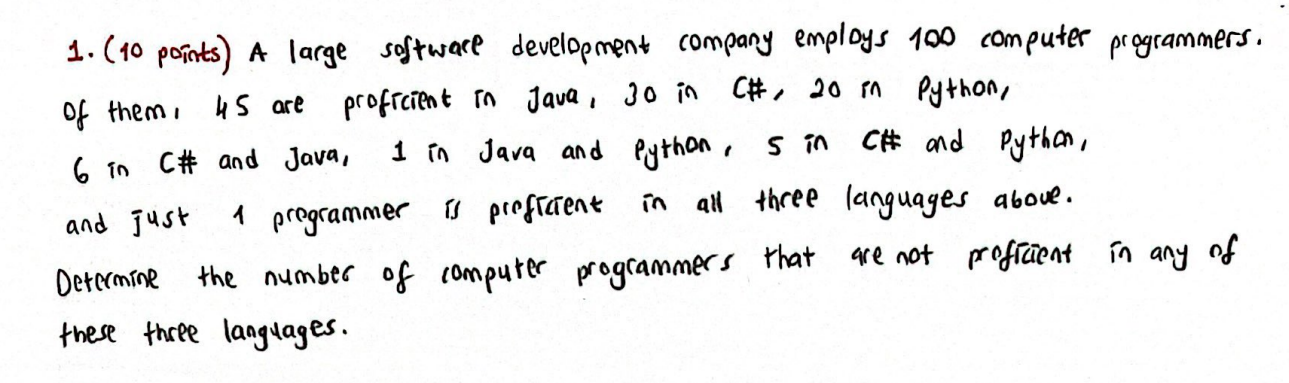 1. (10 points) A large software development company employs 100 computer programmers.
Of them, 45 are proficient in Java, 30 in C#, 20 in Python,
6 in C# and Java, 1 in Java and Python, 5 in C# and Python,
and just 1 programmer is proficient in all three languages above.
Determine the number of computer programmers that are not proficient in any of
these three languages.